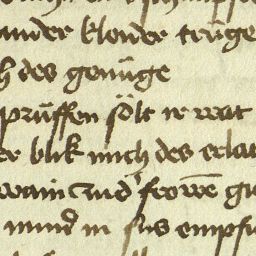 under kleider trüge
h des genüge
prüffen sölt ir wat
er blik mich des erlat
wain vnd frowē gu
mund in sus empfi